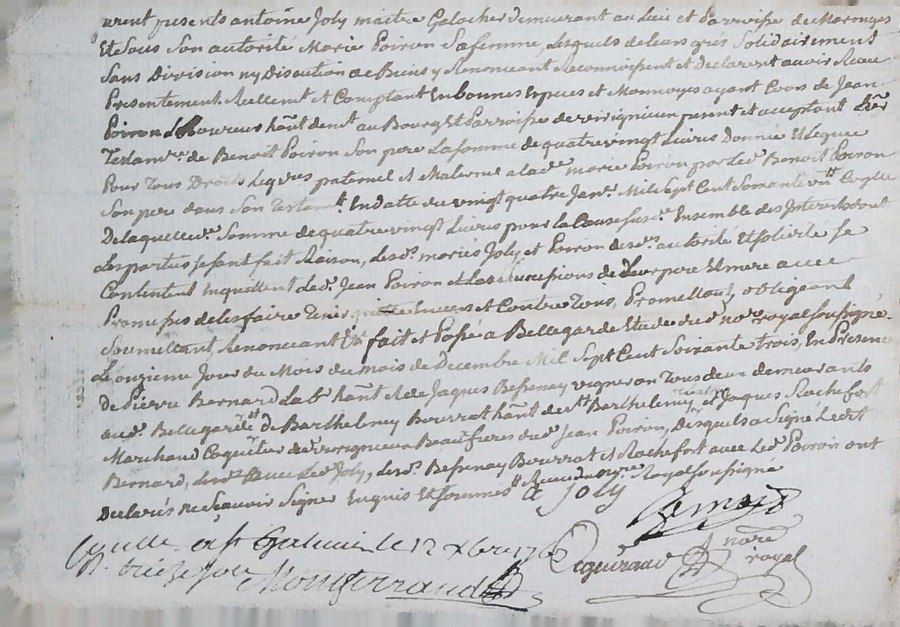 urent presents antoine Joly maitre Galocher demeurant au Lieu et Parroisse de Marmoys
Et Sous Son autorité Marie Poiron Sa femme, Lesquels de leurs grés Solidairement
Sans Division ny Discution de Biens y Renonceant Reconnoissent et Declarent avoir Receu
Presentement Reellement et Comptant En bonnes Especes et Monnoyes ayant Cours de Jean
Poiron Laboureur hâńt au Bourg Et Parroisse de virignieu present et acceptant
Testamre. de Benoit Poiron Son pere La somme de quatre vingt Livres Donnée et Leguée
Pour Tous Droits Legres paternel et Maternel a lade. marie Poiron par Led. Benoit Poiron
Son pere dans Son Testamt. En datte du vingt quatre Janr. Mil Sept Cent Soixante
De laquelle de. Somme de quatre vingt Livres pour la Cause Susde. Ensemble des Interets dont
Les parties se sont fait Raison, Lesds. mariés Joly et Poiron de sd. autorité Et solidité se
Contentent en quittent Led. Jean Poiron et Les successions de Leur pere Et mere avec
Promesses de les faire Tenir quitte Envers et Contre Tous, Promettant, obligeant
Soumettant, Renonceant Et fait et Passé a Bellegarde Etude dud. nore. royal Soussigné
Le onzieme Jour du Mois du mois de Decembre Mil Sept Cent Soixante trois, En Presence
De Pierre Bernard Labr. hânt & de Jaques Bessenay vigneron Tous deux demeurants
aud. Bellegarde et de Barthelemy Bourrat hant de St. Barthelemy et Jaques Rochefort
Marchand Coquetier de virignieu Beaufreres dud. Jean Poiron, desquels a Signé Ledt
Bernard, avec Led. Joly, Lesds. Bessenay Bourrat et Rochefort avec Led. Poiron ont
Declarés ne Sçavoir Signer Enquis Et Sommés Royal Soussigné
a Joly
Bernard
nore
royal
Ceńtlle a St Galmier le 12 Xbre 176
Montferrand